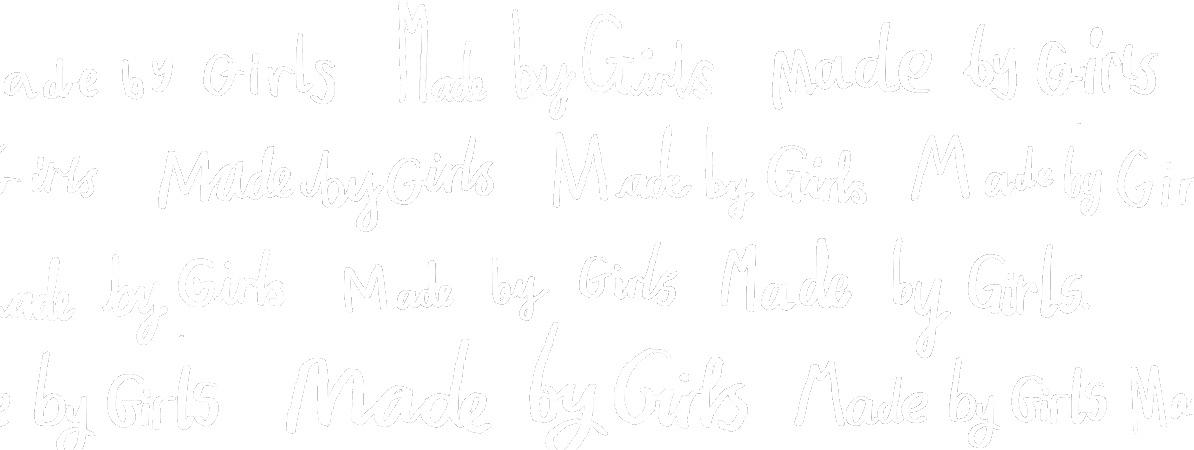 ade by Girls Made by Girls Made by Girls
Girls Made by Girls Made by Girls Made by Gir
ade by Girls Made by Girls Made by Girls.
e by Girls Made by Girls Made by Girls Ma